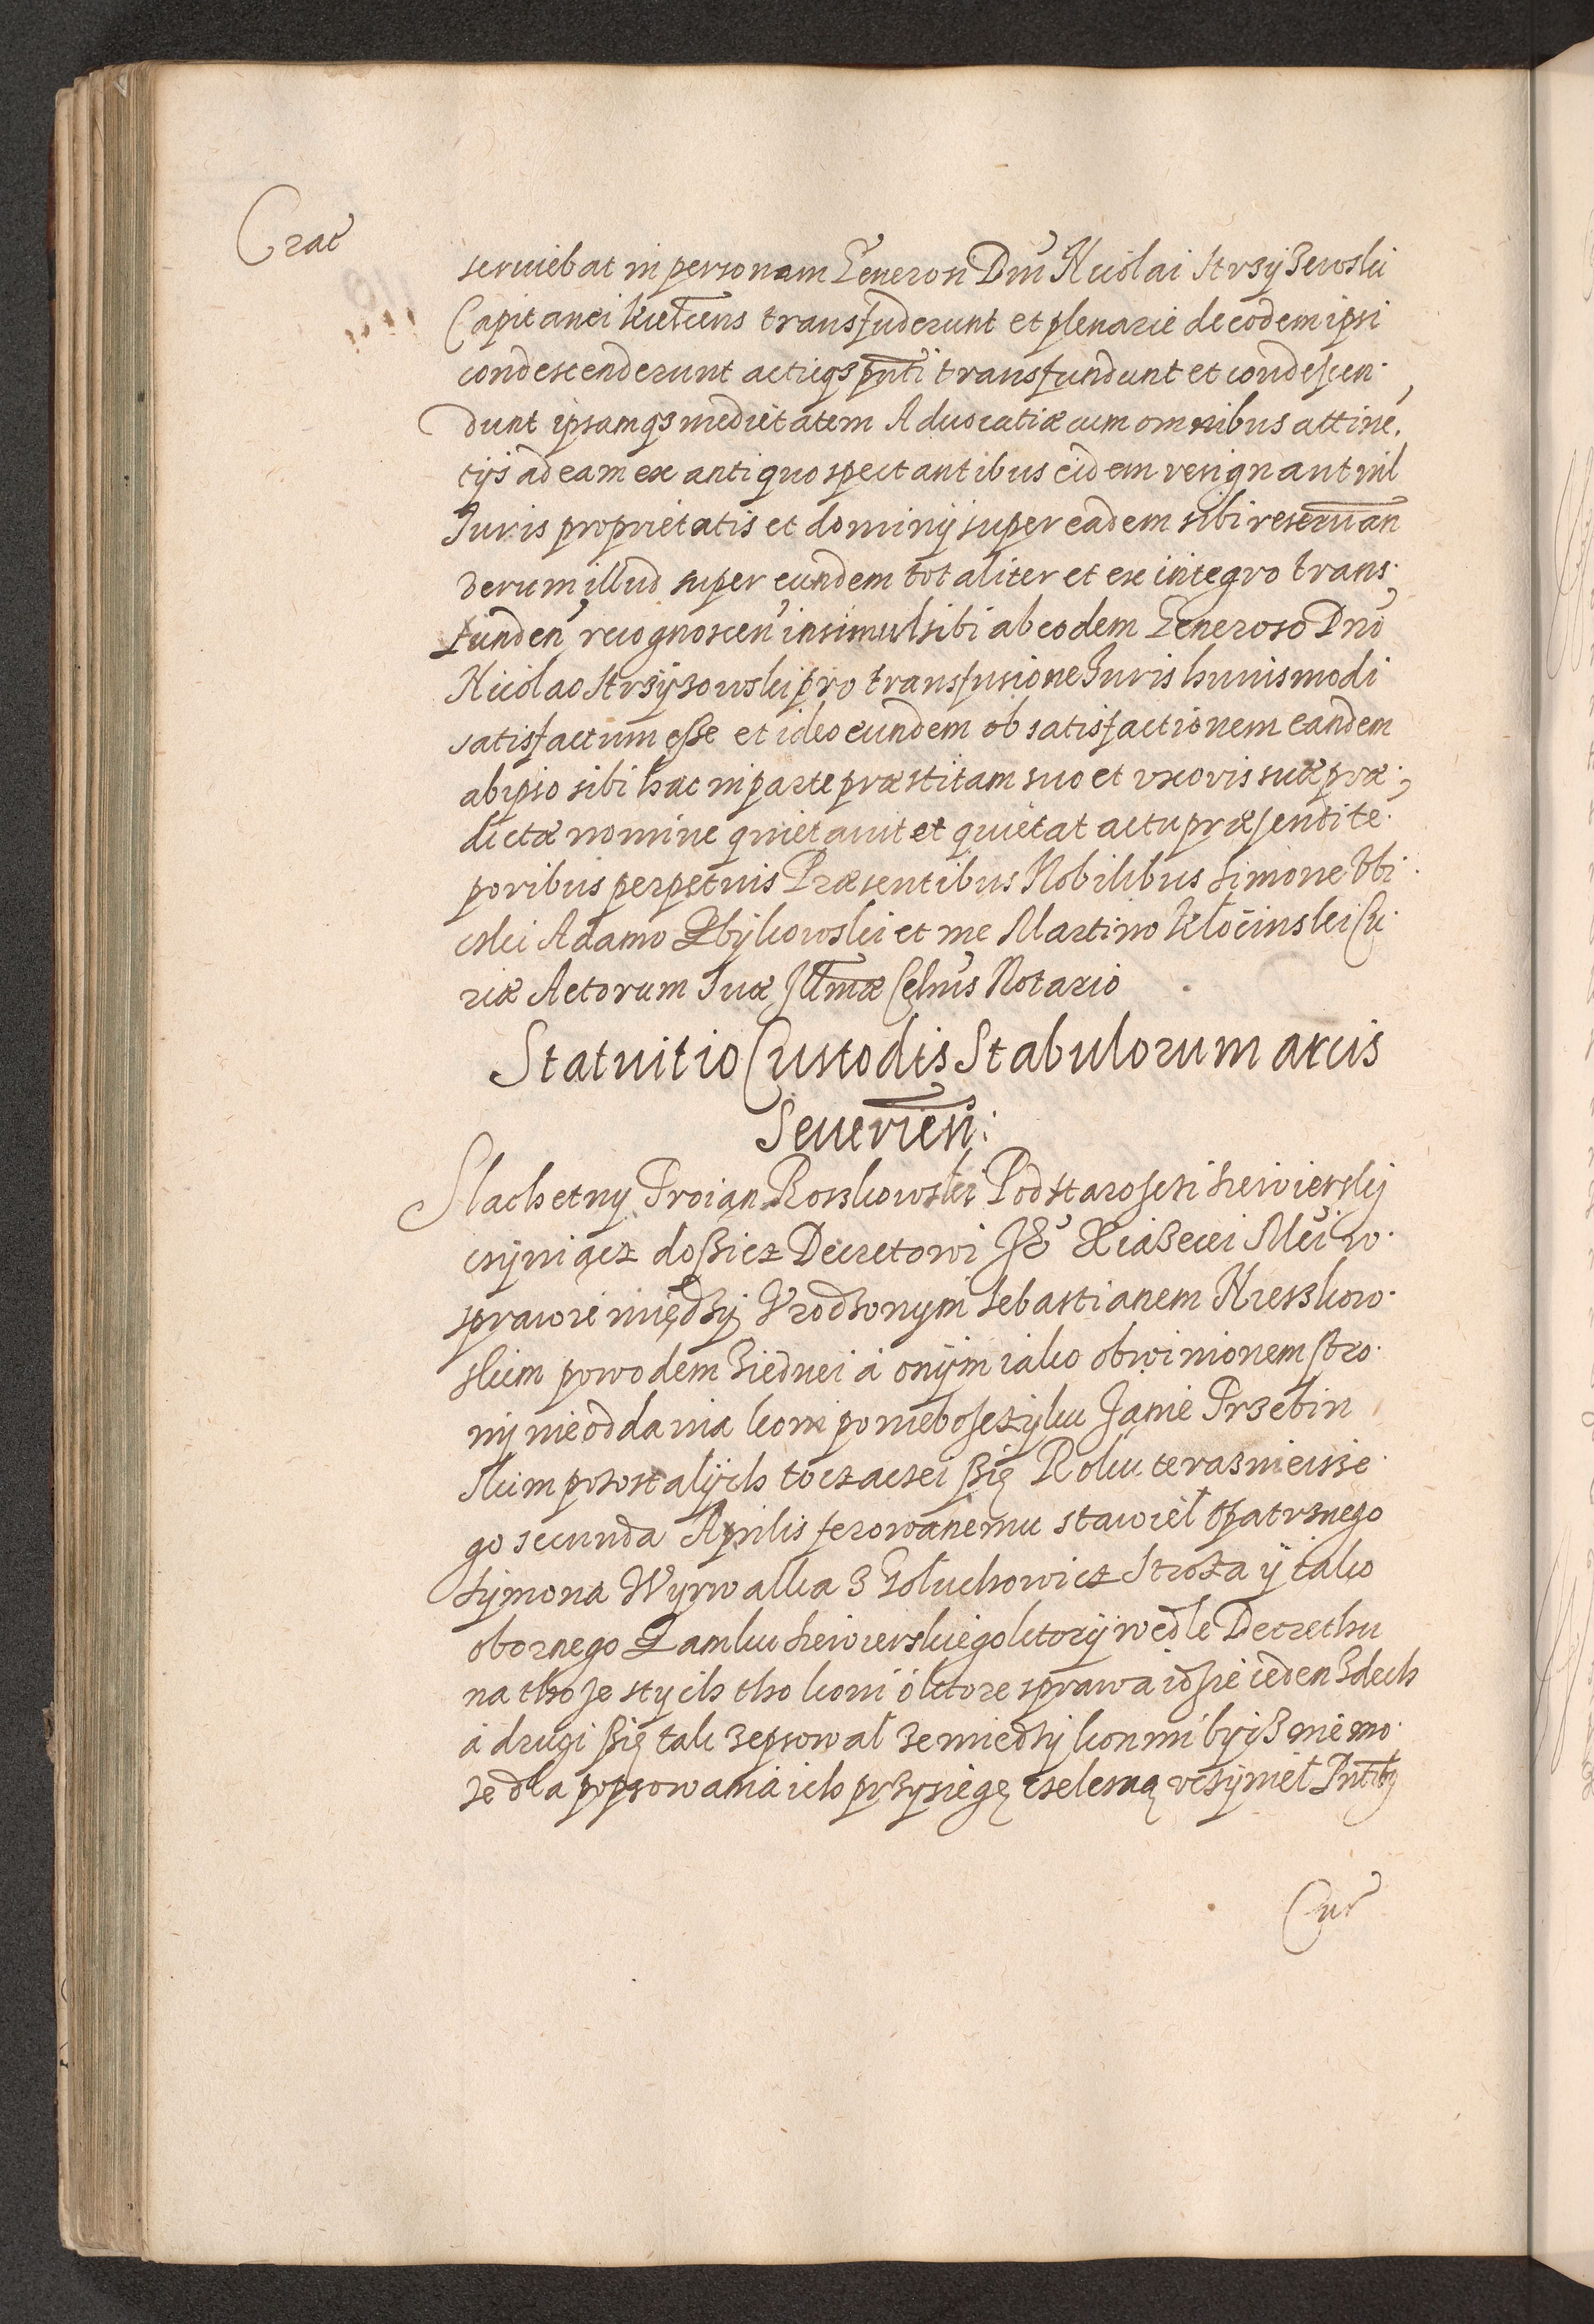 Crac
seruiebat in personam Generosi Dni Nicolai Strzyżewski
Capitanei Kielcens transfuderunt et plenarie de eodem ipsi
condescenderunt actuqз pnti transfundunt et condescen
dunt ipsamqз medietatem Aduocatiæ cum omnibus attinen
tijs ad eam ex antiquo spectantibus eidem resignant nil
Iuris proprietatis et dominij super eadem sibi reseruan
verum illud super eundem totaliter et ex integro trans
funden recognoscen insimul sibi ab eodem Generoso Dno
Nicolao Strzyzowski pro transfusione Iuris huiusmodi
satisfactum esse et ideo eundem ob satisfactionem eandem
ab ipso sibi hac in parte præstitam suo et vxoris suæ præ
dictæ nomine quietauit et quietat actu præsenti te
poribus perpetuis Præsentibus Nobilibus Simone
Adamo Zbykowski et me Martino Kłocinski Cu
riæ Actorum Suæ Illmæ Celnis Notario
Statuitio Custodis Stabulorum arcis
Seuerien:
Slachetny Troian Roszkowski Podstarosczi Siewierskij
czyniącz dosicz Decretowi Je° Xiażecei Mci w
sprawie między Vrodzonym Sebastianem Kieszkow
skim powodem ziednei á onym iako obwinionem stro
ny nieoddania koni po nieboszczyku Janie Trzebin
skim pozostałych toczaczei się Roku teraznieisze
go secunda Aprilis ferowanemu stawieł opatrznego
Symona Wyrwalka z Gołuchowicz Stroża y iako
obornego Zamku Siewierskiego ktory wedle Decrethu
na tho że stych tho koni o ktore sprawa idzie ieden zdech
á drugi się tak zepsował ze miedzy konmi bydz nie mo
że dla popsowania ich przysięgę czelesną vczynieł Pntibꝫ
Cur